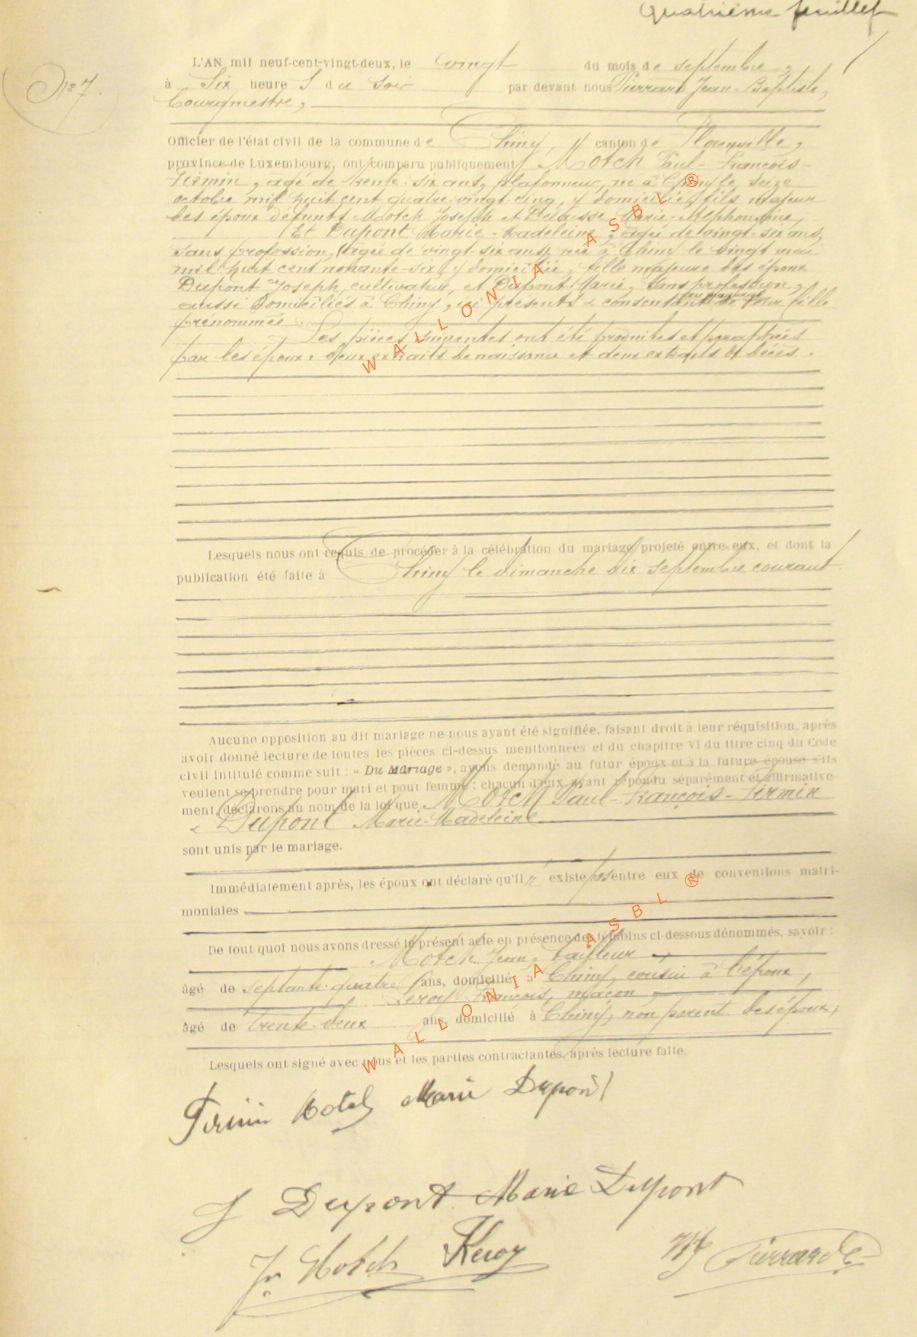 Quatrième feuillet
N° 7.
L'AN mil neuf-cent-vingt-deux, le vingt du mois de septembre,
à Six heures du soir par devant nous Pierrard Jean-Baptiste,
bourgmestre,
Officier de l'état civil de la commune de Chiny, canton de Florenville,
province de Luxembourg, ont comparu publiquement Motch Paul-François-
Firmin, âgé de trente-six ans, plafonneur, né à Chiny le seize
octobre mil huit cent quatre vingt cinq, y domicilié, fils majeur
des époux défunts Motch Joseph et Marie-Alphonsine,
Et Dupont Marie-Madeleine, âgée de vingt-six ans,
sans profession, âgée de vingt-six ans, née à Chiny le vingt mai
mil huit cent nonante-six, y domiciliée, fille majeure des époux
Dupont Joseph, cultivateur, et Dupont Marie, sans profession,
aussi domiciliés à Chiny, ici présents & consentant au mariage de leur fille
prénommée. Les pièces suivantes ont été produites et paraphées
par les époux: deux extraits de naissance et deux extraits de décès.
Lesquels nous ont requis de procéder à la célébration du mariage projeté entre eux, et dont la
publication été faite à Chiny le dimanche dix septembre courant
Aucune opposition au dit mariage ne nous ayant été signifiée, faisant droit à leur réquisition, après
avoir donné lecture de toutes les pièces ci-dessus mentionnées et du chapitre VI du titre cinq du Code
civil intitulé comme suit : « Du Mariage », avons demandé au futur époux et à la future épouse s'ils
veulent se prendre pour mari et pout femme ; chacun d'eux ayant répondu séparément et affirmative-
ment, déclarons au nom de la loi que Motch Paul-François-Firmin
& Dupont Marie-Madeleine
sont unis par le mariage.
Immédiatement après, les époux ont déclaré qu'il n'existe pas entre eux de conventions matri-
moniales
De tout quoi nous avons dressé le présent acte en présence des témoins ci-dessous dénommés, savoir :
Motch Jean, tailleur
âgé de septante-quatre ans, domicilié à Chiny, cousin à l'époux,
Leroy François, maçon,
âgé de trente-deux ans, domicilié à Chiny, non parent des époux,
Lesquels ont signé avec nous et les parties contractantes, après lecture faite.
Firmin Motch Marie Dupont
J Dupont Marie Dupont
Jn Motch Leroy Pierrard
WALLONIA ASBL ®
WALLONIA ASBL ®